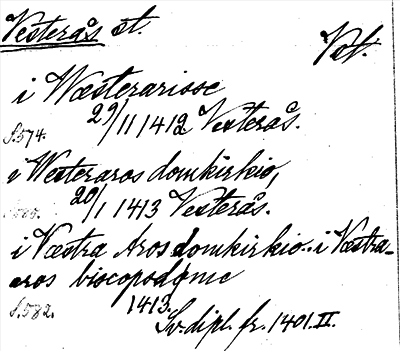 Vesterås st. Vstl.
i Wæsterarisse
S. 574. 29/11 1412 Vesterås.
i Westeraros domkirkio,
20/1 1413 Vesterås.
i Væstra Aros domkirkio. i Væstra-
aros biscopsdøme
S. 582. 1413.
Sv. dipl. fr. 1401. II.